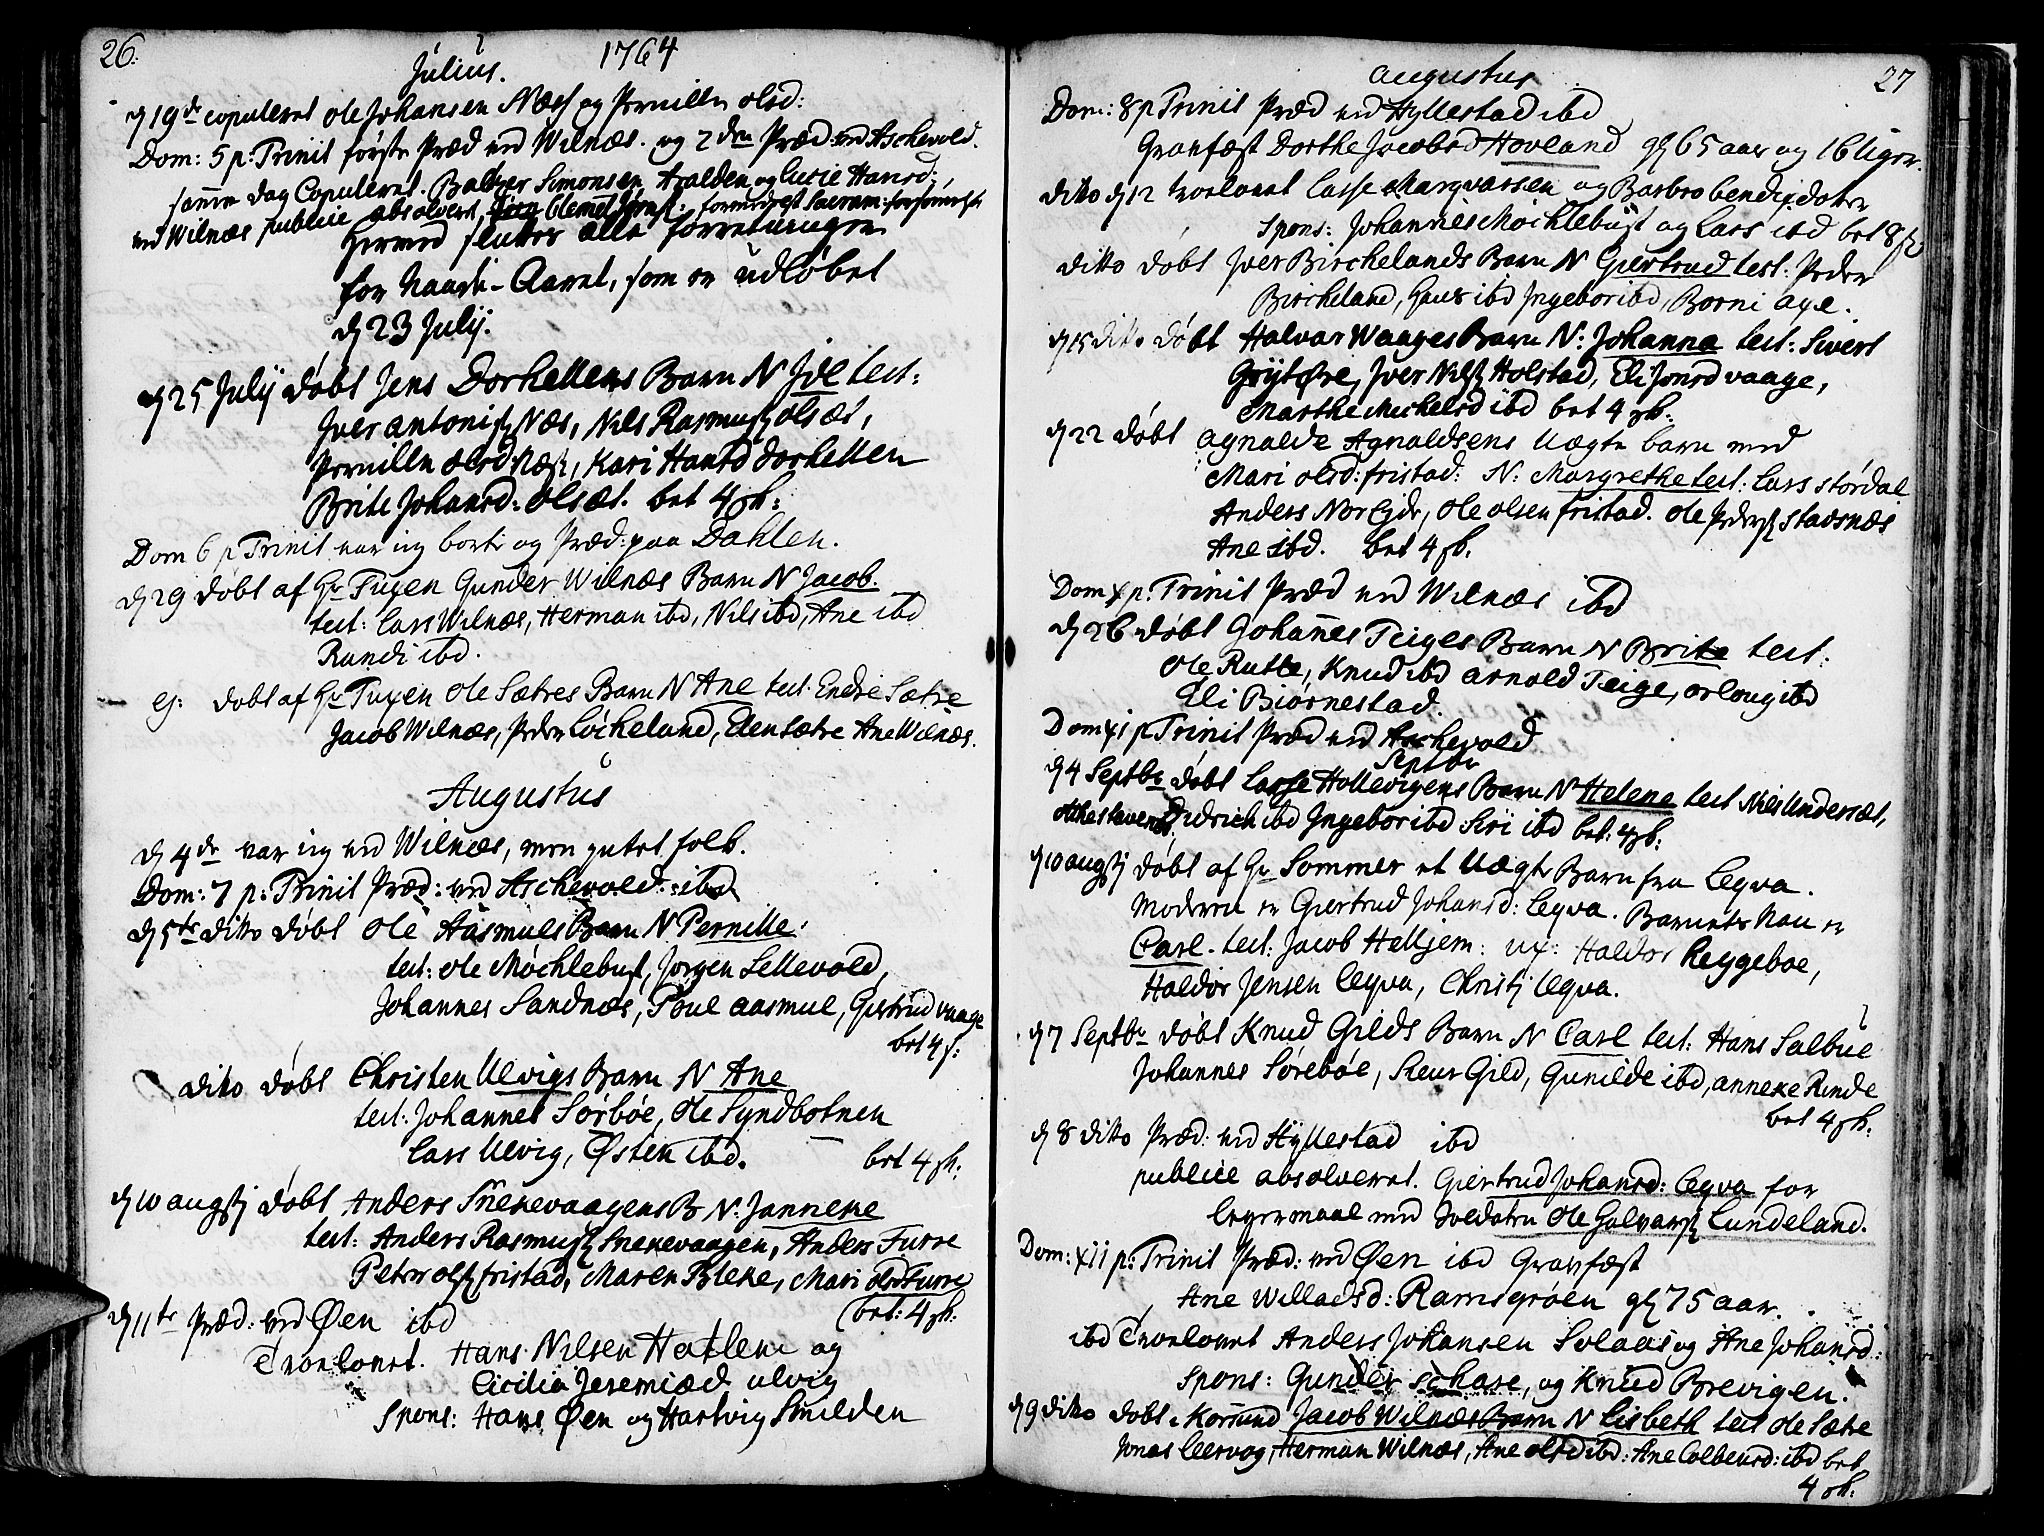 26.
1764
Julius.
d 19de copuleret Ole Johansen Næss og Pernille Olsd:
Dom: 5 p: Trinit første Præd ved Wilnæs. og 2den Præd: ved Aschevold.
samme dag Copuleret. Baltzer Simonsen Halden og Lucie Hansd:,
ved Wilnæs publice absolveret, formedelst Sacram: forsømmelse
Hermed slutter alle forretninger
for Naade-Aaret, som er udløbet
d 23 Julij.
d 25 Julij døbt Jens Dorhellens Barn N Ide test:
Jver Antonis Næs, Nils Rasmuss Olsæt,
Pernille Olsd Næss, Kari Hansd Dorhellen
Brite Johansd. Olsæt. bet 4 sk:
Dom 6 p Trinit var jeg borte og Præd: paa Dahlen.
d 29 døbt af Hr Tuxen Gunder Wilnæs Barn N Jacob.
test: Lars Wilnæs, Herman ibd, Nils ibd, Ane ibd
Randi ibd.
ej: døbt af Hr Tuxen Ole Sætres Barn N Ane test. Endre Sætre
Jacob Wilnæs, Peder Löcheland, Elen Sætre Ane Wilnæs.
Augustus
d 4de var jeg ved Wilnæs, men intet folk.
Dom: 7 p: Trinit Præd: ved Aschevold: ibd
d 5te dito døbt Ole Aasmuls Barn N Pernille:
test: Ole Møchlebust, Jørgen Sellevold,
Johannes Sandnæs, Poul Aasmul, Giertrud Vaage
bet 4 s:
dito døbt Christen Ulvigs Barn N Ane
test: Johannes Sörböe, Ole Syndbotnen
Lars Ulvig, Østen ibd.
bet 4 sk:
d 10 augstj døbt Anders Snekevaagens B N: Janneke
test: Anders Rasmuss Snekevaagen, Anders Furre
Peter Olss fristad, Maren Bleke, Mari Olsd Furre
bet: 4 sk:
d 11te Præd: ved Øen ibd
Trolovet. Hans Nilsen Hatlem og
Cicilia Jeremiæd Ulvig
Spons: Hans Øen og Hartvig Smilden
27
Augustus
Dom: 8 p Trinit Præd ved Hyllestad ibd
Gravfæst Dorthe Jacobsd Hovland gl 65 aar og 16 Uger.
dito d 12 trolovet Lasse Marqvarsen og Barbro Bendixdater
Spons: Johannes Møchlebust og Lars ibd bet 8 s
dito døbt Jver Birchelands Barn N Giertrud test: Peder
Bircheland, Hans ibd Jngebor ibd, Borni age.
d 15 dito døbt Halvar Waages Barn N: Johanna test: Sivert
Grytøre, Jver Nilss Holstad, Eli Jonsd Vaage,
Marthe Michelsd ibd bet 4 sk:
d 22 døbt Agnalde Agnaldsens Uægte barn med
Mari Olsd: fristad: N: Margrethe test: Lars Stordal
Anders Norgjde, Ole Olsen fristad. Ole Peders Stadsnæs
Ane ibd. bet 4 sk.
Dom x p: Trinit Præd ved Wilnæs ibd
d 26 døbt Johannes Teiges Barn N Brite test:
Ole Rutle, Knud ibd Arnold Teige, Orloug ibd
Eli Biørnestad.
Dom xi p Trinit Præd ved Aschevold
Septbr
d 4 Septbr døbt Lasse Hollevigens Barn N Helene test Nils Undersæt,
Didrich ibd Jngebor ibd Siri ibd bet: 4 sk:
d 10 augstj døbt af Hr Sommer et Uægte Barn fra Leqva.
Moderen er Giertrud Johansd: Leqva. Barnets Nau er
Carl. test: Jacob Hellsem: ux: Haldor Reggeboe,
Haldor Jensen Leqva, Christj Leqva.
d 7 Septbr døbt Knud Gilds Barn N Carl test: Hans Salbue
Johannes Sörebøe, Steur Gild, Gunilde ibd, Anneke Rinde
bet 4 sk:
d 8 dito Præd: ved Hyllestad ibd
publice absolveret. Giertrud Johansd: Leqva for
Leyermaal med Soldaten Ole Halvars Lundeland.
Dom: xii p: Trinit Præd: ved Øen ibd Gravfæst
Ane Willadsd: Ramsgrøen gl 75 aar.
ibd Trolovet Anders Johansen Solaas og Ane Johansd:
Spons: Gunder Schare, og Knud Brevigen.
d 9 dito døbt Jacob Wilnæs Barn N Lisbeth test Ole Sætre
Jonas Leervog, Herman Wilnæs, Ane Olsd ibd: Ane Colbensd: ibd bet
4 sk: